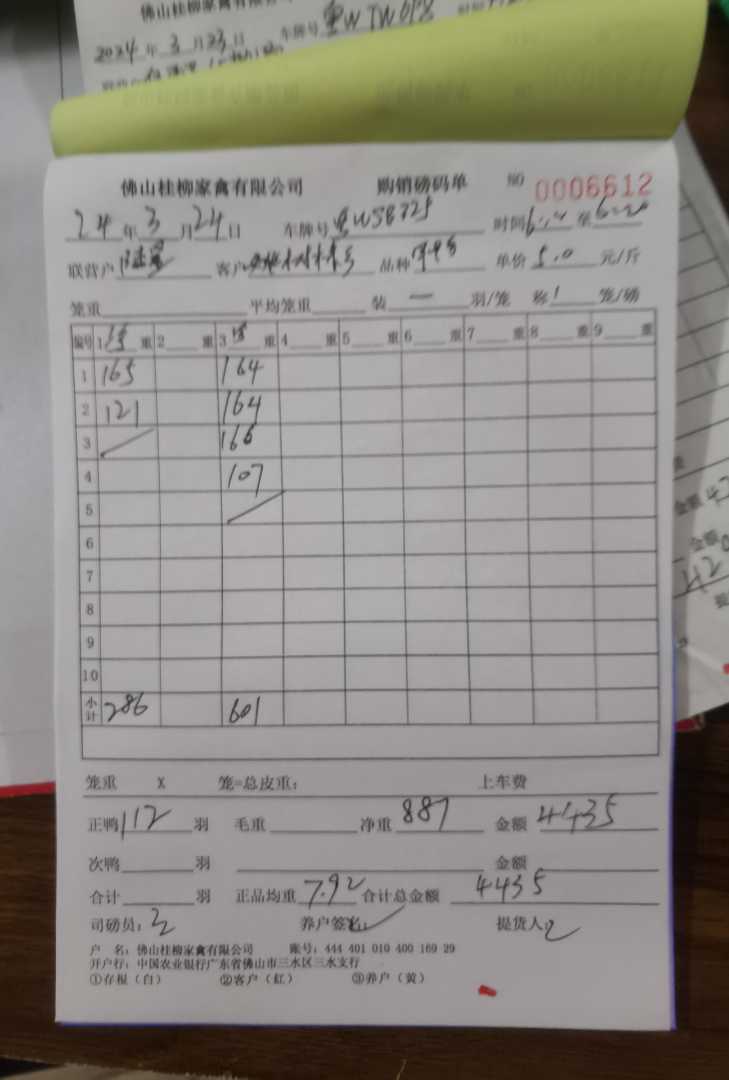 佛山桂柳家禽有限公司
2024年3月23日 车牌号
佛山桂柳家禽有限公司 购销磅码单 NO 0006612
24年3月24日 车牌号 WSB725 时间 至
联营户 客户 品种 单价5.0元/斤
笼重 平均笼重 装 一 羽/笼 称 1 笼/磅
编号 1 15 重 2 重 3 15 重 4 重 5 重 6 重 7 重 8 重 9 重
1 165 164
2 121 164
3 166
4 107
5
6
7
8
9
10
小计 286 601
笼重 X 笼=总皮重: 上车费
正鸭 112 羽 毛重 净重 887 金额 4435
次鸭 羽 金额
合计 羽 正品均重 7.92 合计总金额 4435
司磅员: 养户签名: 提货人:
户 名: 佛山桂柳家禽有限公司 账号: 444 401 010 400 169 29
开户行: 中国农业银行广东省佛山市三水区三水支行
①存根(白) ②客户(红) ③养户(黄)
金额
金额